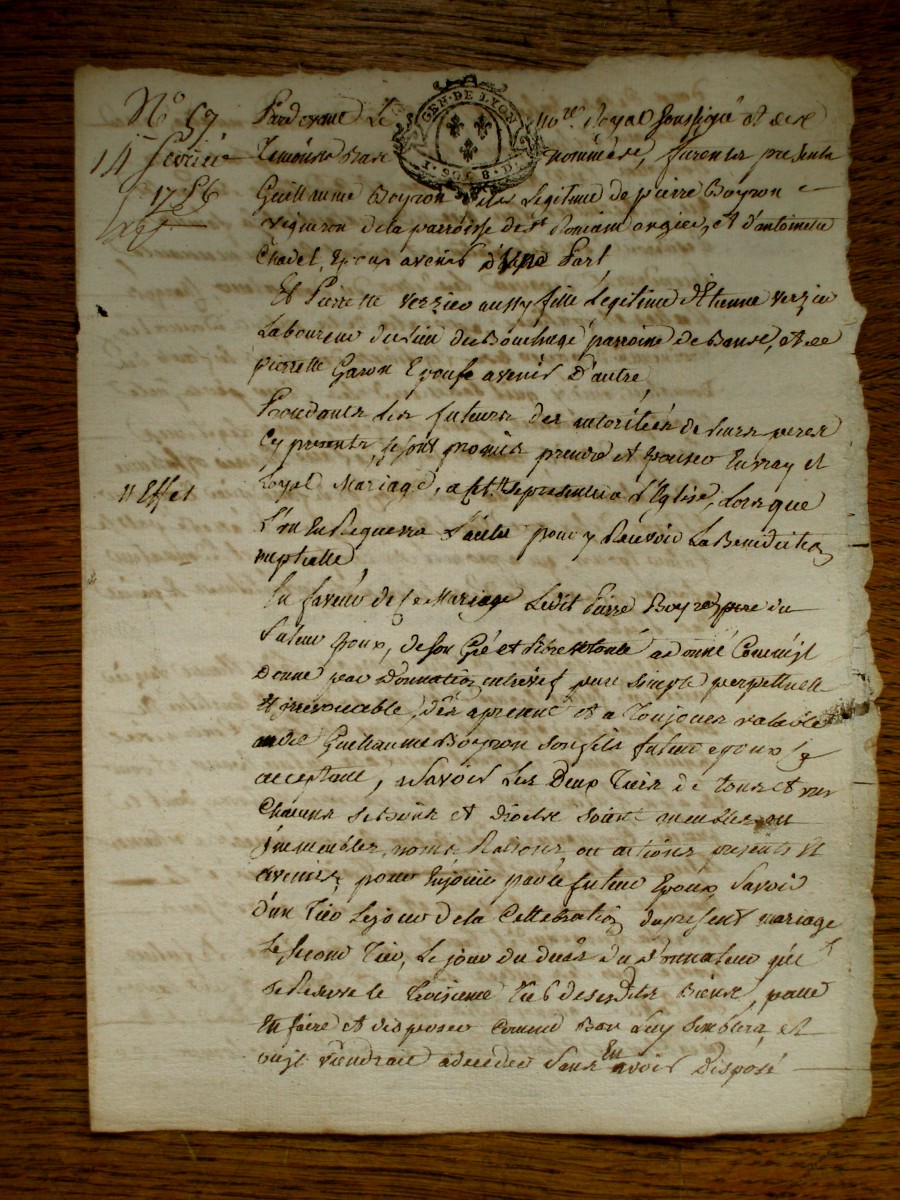 N° 67
14 fevrier
1756
GEN · DE LYON
Pardevant Le no.re Royal soussigné et
Temoins Bas nommés, furent presents
Guillaume Boyron fils Legitime de pierre Boyron
vigneron de la parroisse de st Romain et d'antoinette
Chadel, Epoux avenir d'une Part
Et Pierrette verzieu aussy fille Legitime d'Etienne verzieu
Laboureur du Lieu du Bouchage parroisse de et de
pierrette Garon Epouse avenir D'autre
Lesquels futurs des autorités de Leurs peres
Cy presents, se sont promis prendre et Epouser En vray et
Loyal Mariage, a se presenter a L'Eglise, Lors que
11 Effet
L'un En Requerra L'autre pour y Recevoir La Benediction
nuptialle
En faveur de Ce Mariage Ledit Pierre Boyron pere du
futur Epoux, de son Gré et Libre volonté a donné Comme jl
Donne par Donnation entrevif pure simple perpetuelle
Et jrrevocable, dès a present et a Toujours valable
audit Guillaume Boyron son fils futur epoux
acceptant, a Savoir Les Deux Tiers de tous et uns
Chacuns ses Biens et droits soient meubles ou
jmmeubles, noms Raisons ou actions presents Et
avenir, pour En jouir par le futur Epoux, Savoir
d'un Tier Le jour de la Cellebration du present mariage
Le second Tier, Le jour du decès du Donnateur qui
se Reserve le troisieme Tier de sesdits Biens, pour
En faire et disposer Comme Bon Luy semblera et
ou jl viendrait a deceder Sans En avoir Disposé